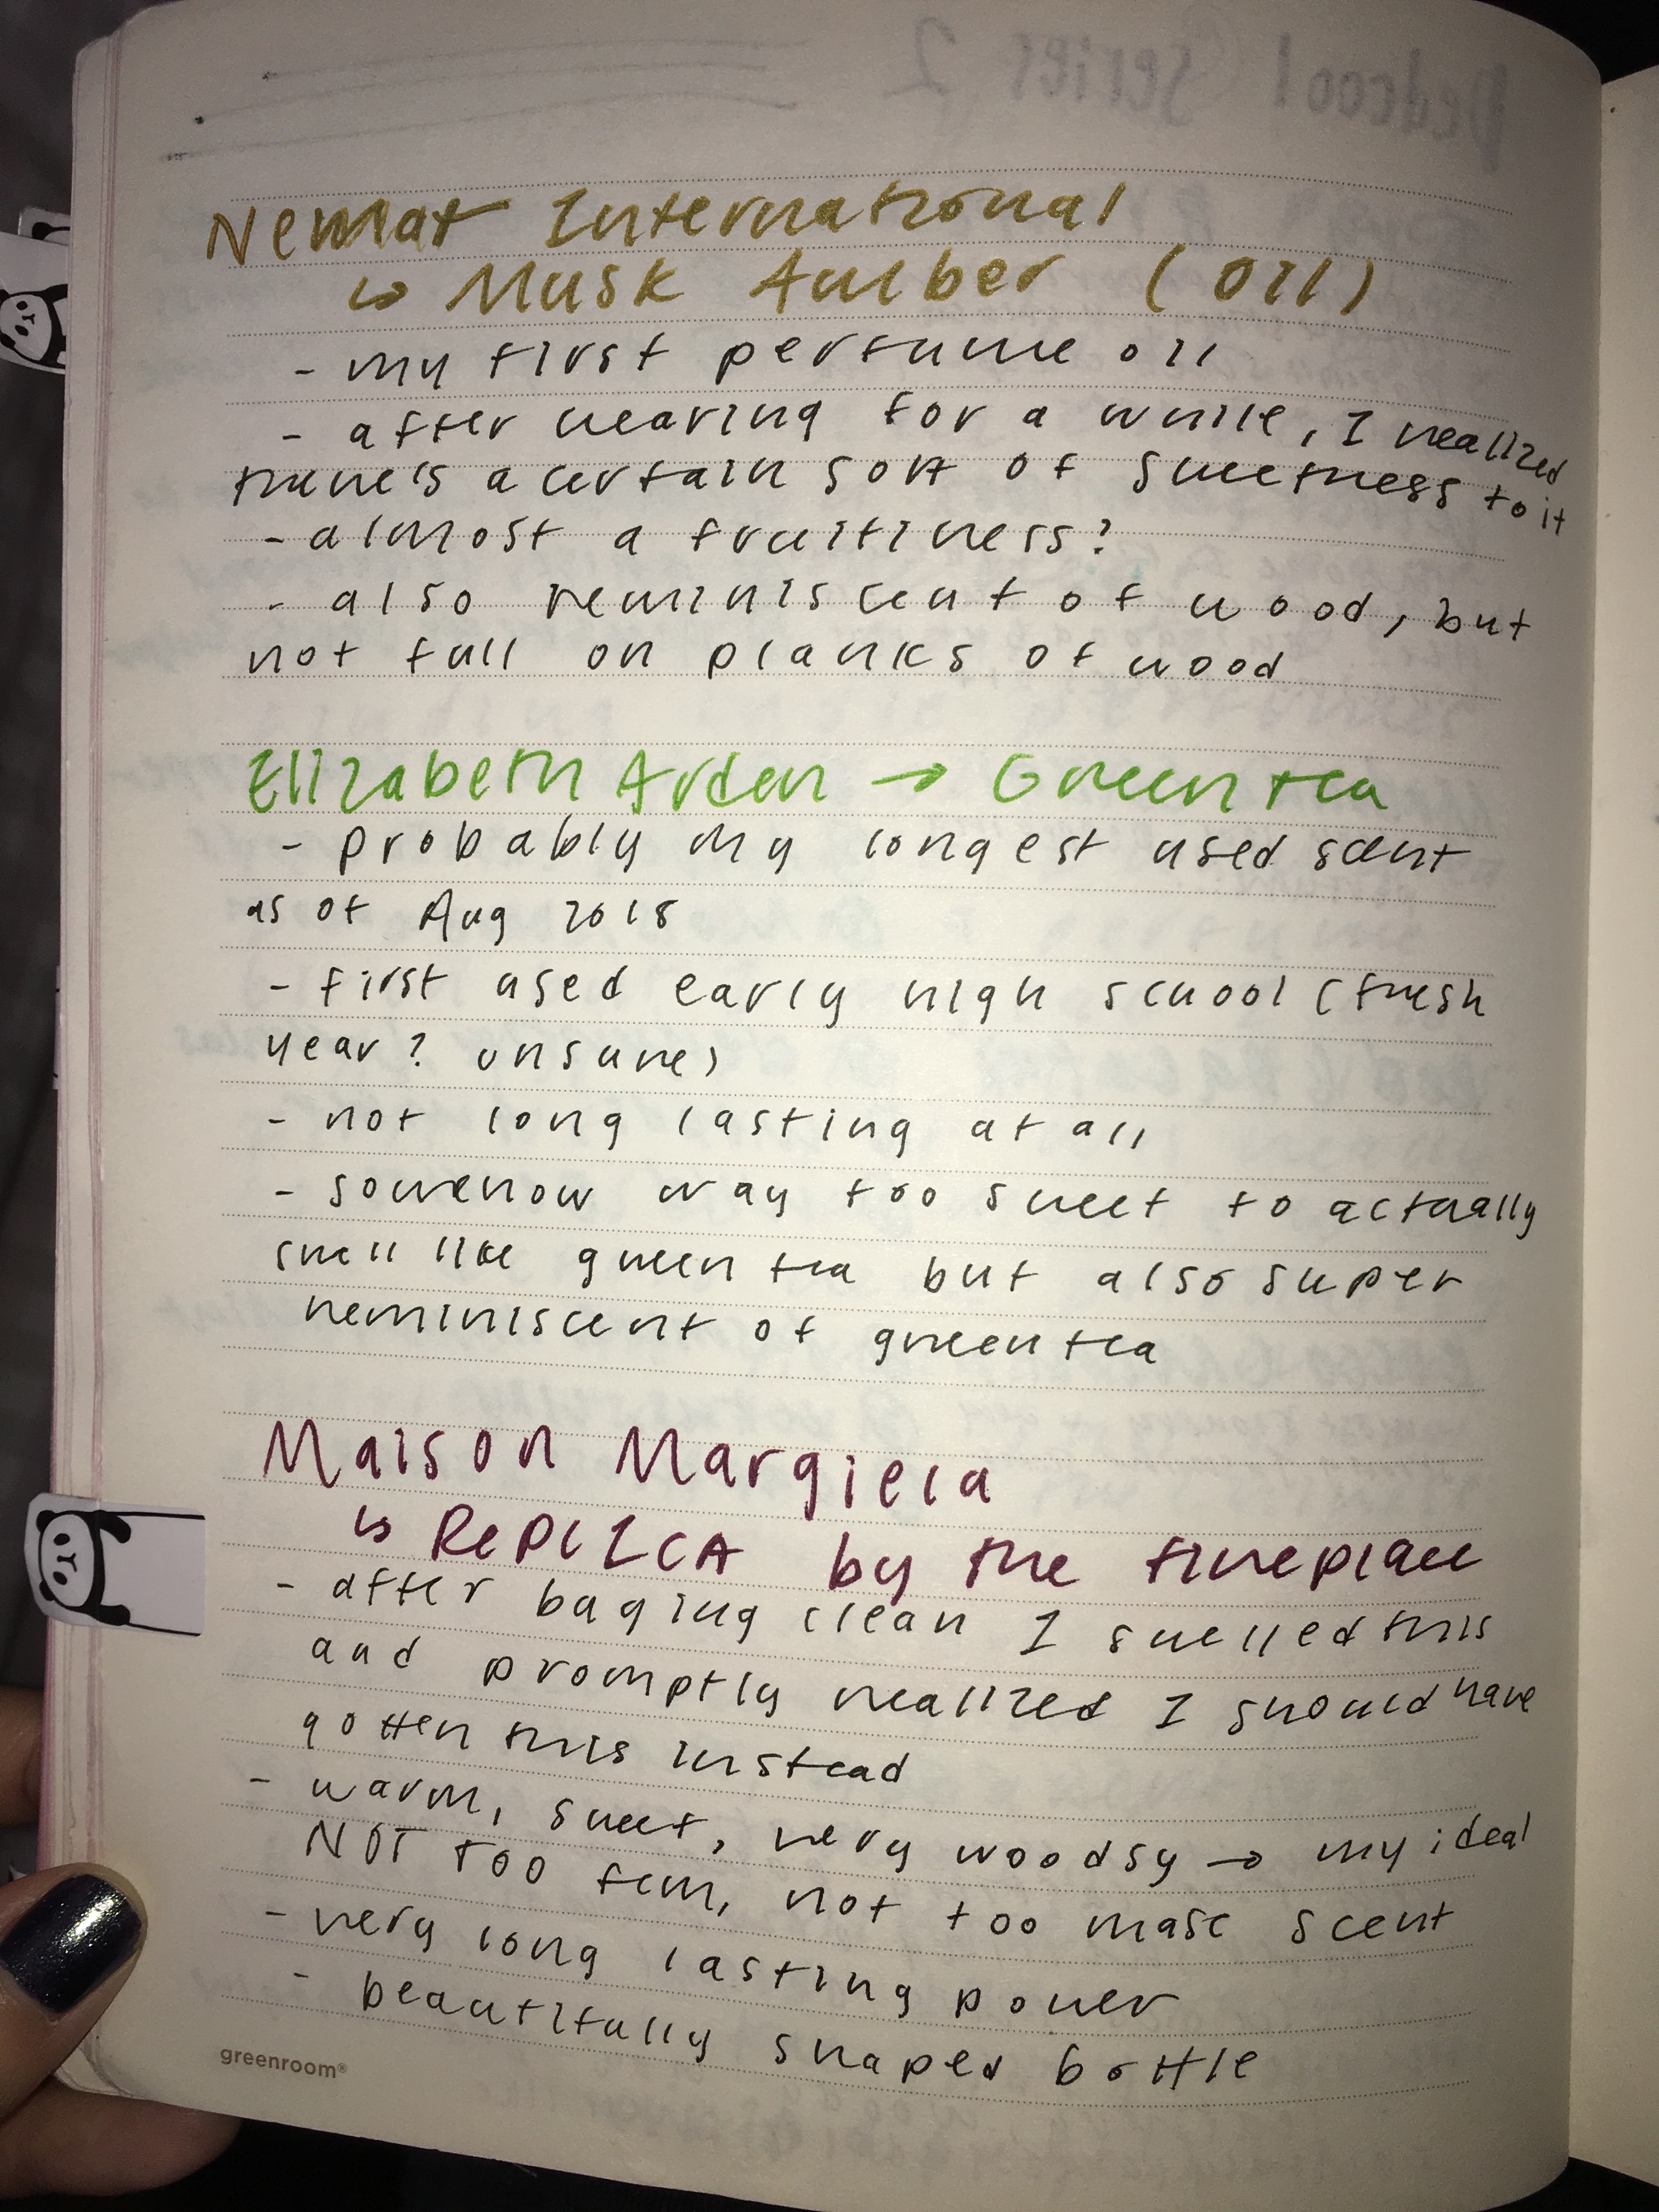 Dedcool Series 2
Nemat International
↳ Musk Amber (oil)
- my first perfume oil
- after wearing for a while, I realized
there's a certain sort of sweetness to it
- almost a fruitiness?
- also reminiscent of wood, but
not full on planks of wood
Elizabeth Arden → Green tea
- probably my longest used scent
as of Aug 2018
- first used early high school (fresh
year? unsure)
- not long lasting at all
- somehow way too sweet to actually
smell like green tea but also super
reminiscent of green tea
Maison Margiela
↳ RePLICA by the fireplace
- after buying clean I smelled this
and promptly realized I should have
gotten this instead
- warm, sweet, very woodsy → my ideal
NOT TOO fem, not too masc scent
- very long lasting power
- beautifully shaped bottle
greenroom®